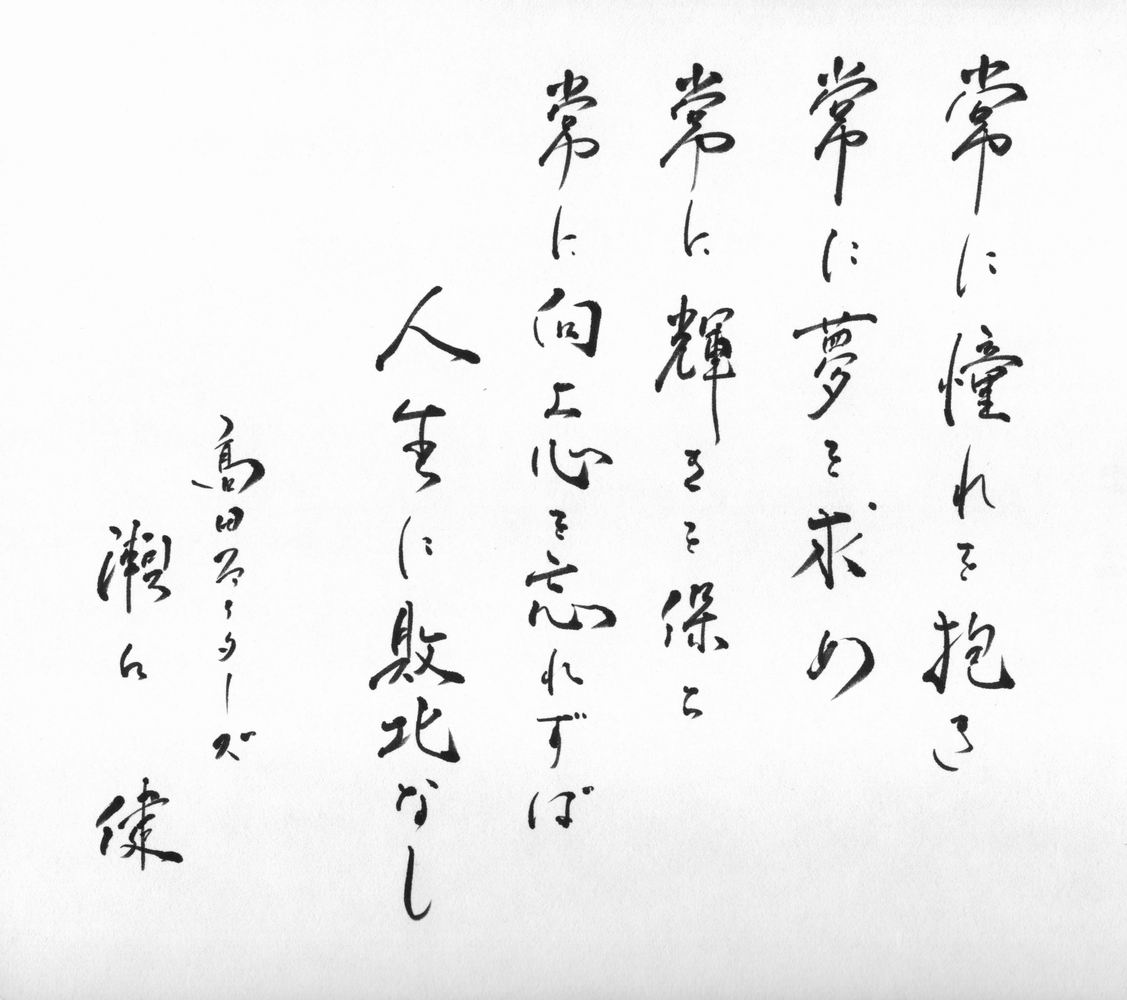 常に憧れを抱き
常に夢を求め
常に輝きを保ち
常に向上心を忘れずば
人生に敗北なし
高田ギターズ
瀬口 健